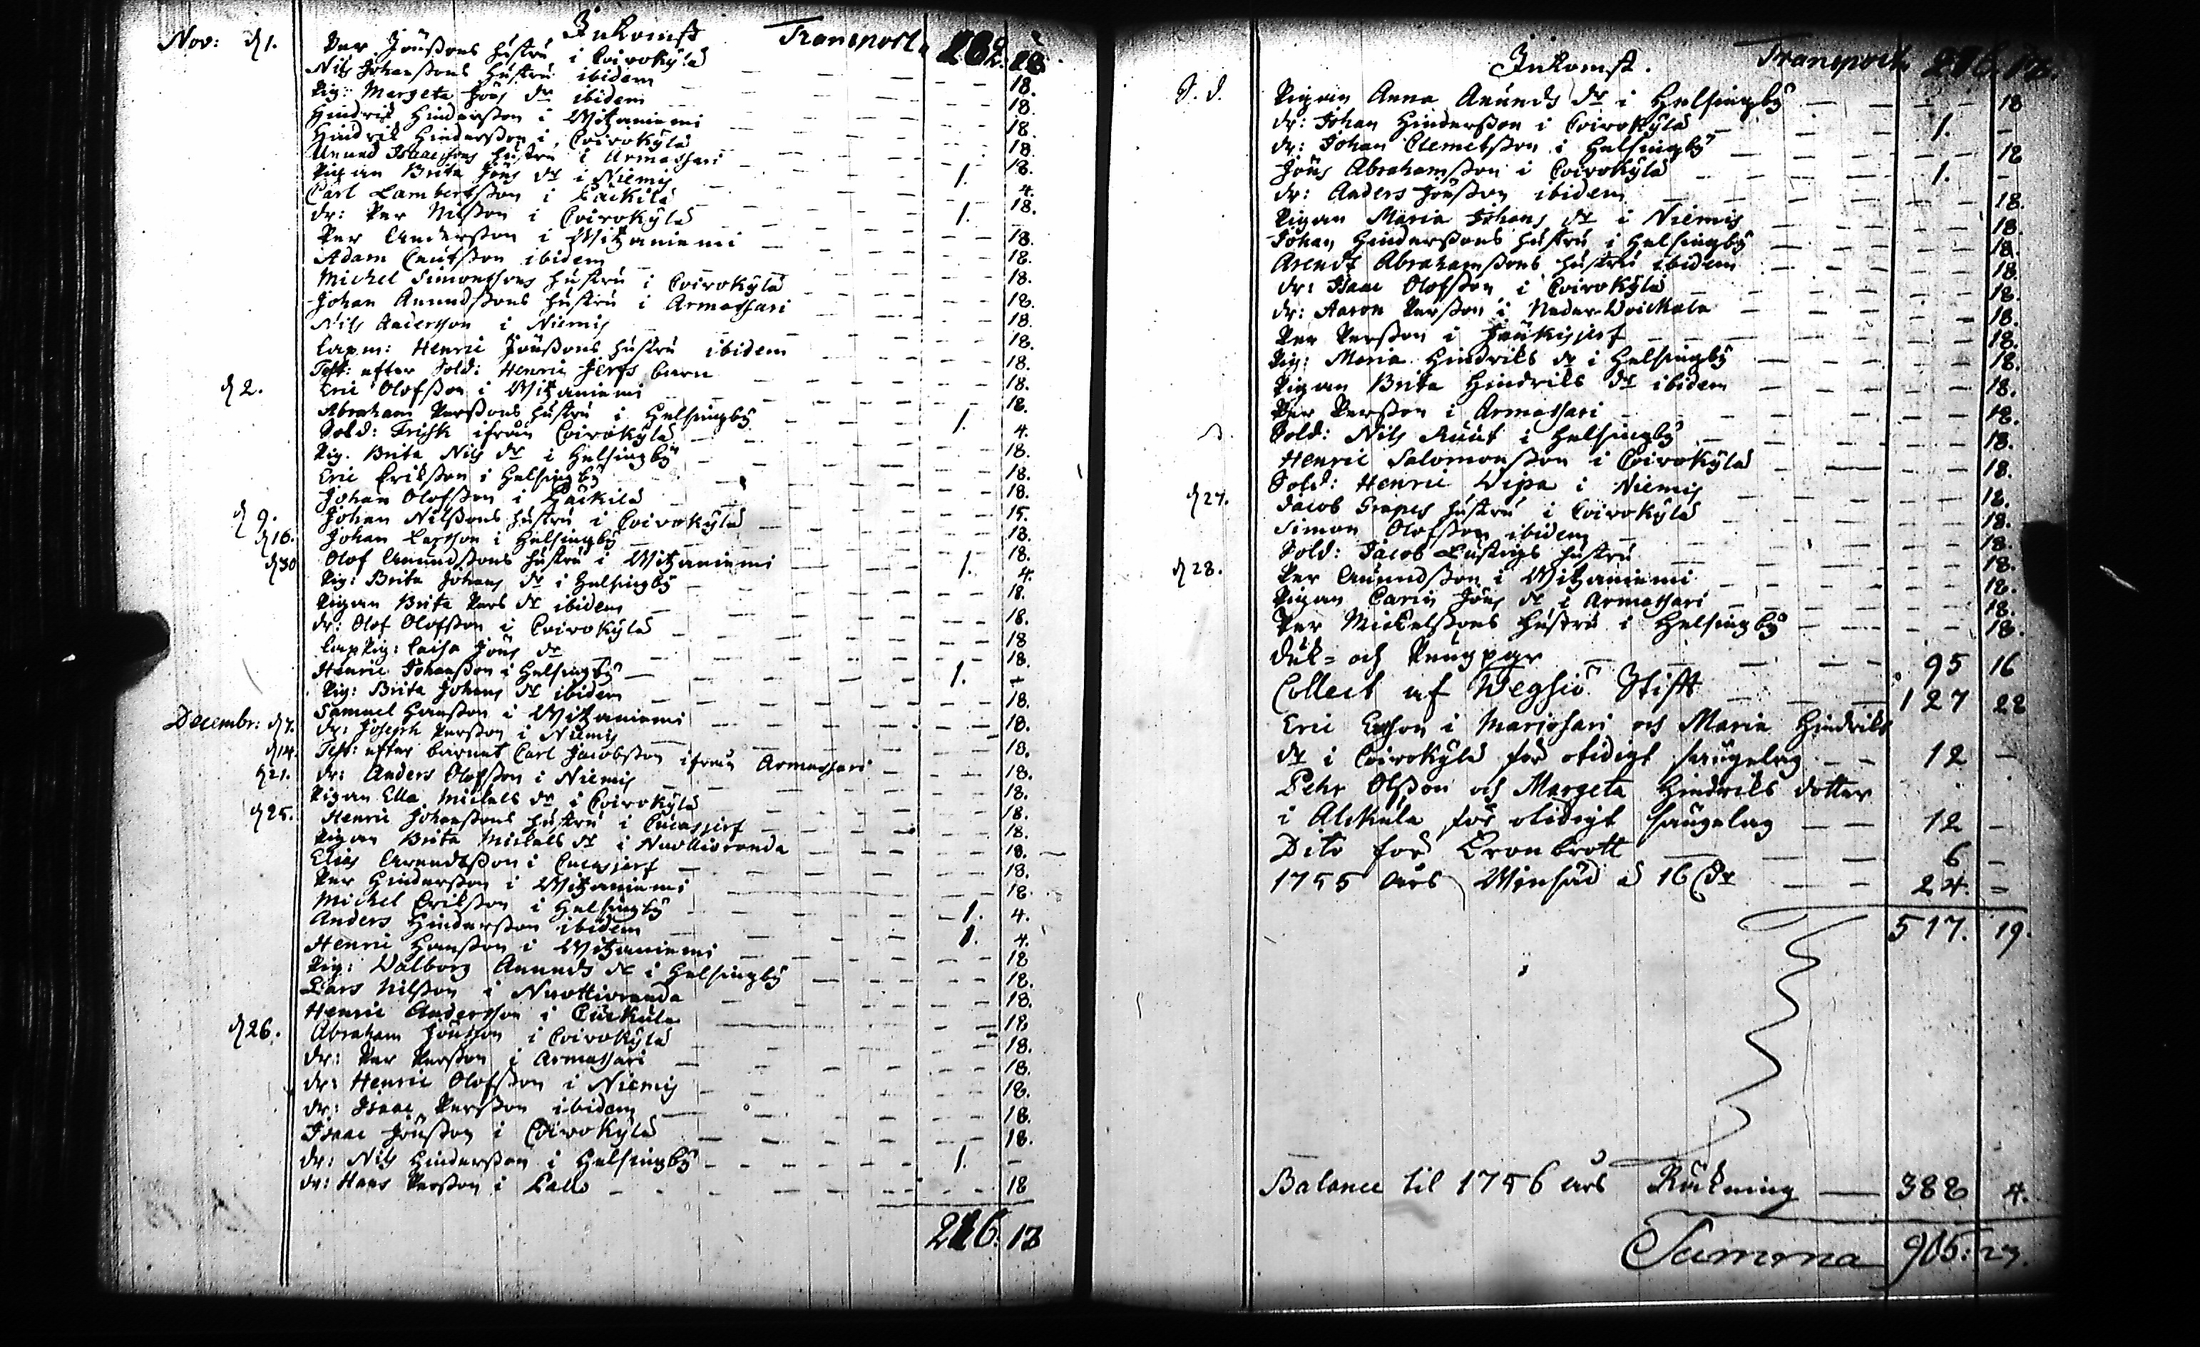 Inkomst Transport
Nov: d 1. Per Jönssons hustru i Coirokÿlä 18.
Nils Johanssons hustru ibidem 18.
Pig: Margeta Jöns dr ibidem 18.
Hindrik Hindersson i Witzaniemi 18.
Hindrik Hindersson i Coirokÿlä 18.
Anund Isaacssons hustru i Armassari
Pigan Brita Jöns dr i Niemis 1. 4.
Carl Lambertsson i Päckilä 18.
dr: Per Nilsson i Coirokÿlä 1.
Per Andersson i Witzaniemi 18.
Adam Cnutsson ibidem 18.
Michel Simonssons hustru i Coirokÿlä 18.
Johan Anundssons hustru i Armassari 18.
Nils Andersson i Niemis 18.
Lapm: Henric Jönssons hustru ibidem 18.
Test: efter Sold: Henric Jerfs barn 18.
d 2. Eric Olofsson i Witzaniemi 18.
Abraham Perssons hustru i Helsingbÿ 1. 4.
Sold: Frisk ifrån Coirokÿlä 18.
Pig. Brita Nils dr i Helsingbÿ 18.
Eric Ericksson i Helsingbÿ 18.
Johan Olofsson i Päckilä 15.
d 9. Johan Nilssons hustru i Coirokÿlä 18.
d 16. Johan Larsson i Helsingbÿ 18.
d 30 Olof Anundssons hustru i Witzaniemi 1. 4.
Pig: Brita Johans dr i Helsingbÿ 18.
Pigan Brita Pers dr ibidem 18.
dr: Olof Olofsson i Coirokÿlä 18
Lap Pig: Caisa Jöns dr 18.
Henric Johansson i Helsingbÿ 1. –
Pig: Brita Johans dr ibidem 18.
Samuel Hansson i Witzaniemi 18.
Decembr: d 7. dr: Joseph Persson i Niemis 18.
d 14. Test: efter barnet Carl Jacobsson ifrån Armassari 18.
d 21. dr: Anders Olofsson i Niemis 18.
Pigan Ella Mickels dr i Coirokÿlä 18.
d 25. Henric Johanssons hustru i Cucasjerf 18.
Pigan Brita Mickels dr i Nuottioranda 18.
Elias Arendtsson i Cucasjerf 18.
Per Hindersson i Witzaniemi 18.
Michel Ericksson i Helsingbÿ 1. 4.
Anders Hindersson ibidem 1. 4.
Henric Hansson i Witzaniemi 18
Pig: Walborg Anunds dr i Helsingbÿ 18.
Lars Nilsson i Nuottioranda 18.
Henric Andersson i Cuckula 18
d 26. Abraham Jönsson i Coirokÿlä 18.
dr: Per Persson i Armassari 18.
dr: Henric Olofsson i Niemis 18.
dr: Isaac Persson ibidem 18.
Isaac Jönsson i Coirokÿlä 18.
dr: Nils Hindersson i Helsingbÿ 1. –
dr: Hans Persson i Kallo 18
Inkomst. Transport
S. d. Pigan Anna Anunds dr i Helsingbÿ 18
dr: Johan Hindersson i Coirokÿlä 1. –
dr: Johan Clemetsson i Helsingbÿ 18
Jöns Abrahamsson i Coirokÿlä 1. –
dr: Anders Jönsson ibidem 18.
Pigan Maria Johans dr i Niemis 18.
Johan Hinderssons hustru i Helsingbÿ 18.
Arendt Abrahamssons hustru ibidem 18.
dr: Isaac Olofsson i Coirokÿlä 18.
dr: Aaron Persson i Neder Woickala 18.
Per Persson i Jäukisjerf 18.
Pig: Maria Hindriks dr i Helsingbÿ 18.
Pigan Brita Hindriks dr ibidem 18.
Per Persson i Armassari 18.
Sold: Nils Knut i Helsingbÿ 18.
Henric Salomonsson i Coirokÿlä 18.
Sold: Henric Wepa i Niemis 18.
d 27. Jacob Grapes hustru i Coirokÿlä 18.
Simon Olofsson ibidem 18.
Sold: Jacob Lustigs hustru 18.
d 28. Per Anundsson i Witzaniemi 18.
Pigan Carin Jöns dr i Armassari 18.
Per Mickelssons hustru i Helsingbÿ 18.
Duk- och Pung pgr 95 16
Collect af Wegsiö Stifft 127 22
Eric Ersson i Marjosari och Maria Hindriks
dr i Coirokÿlä för otidigt sängelag 12 –
Pehr Olsson och Margeta Hindriks dotter
i Alckula för otidigt sängelag 12 –
Dito för Kronbrott 6 –
1755 års Winsäd à 16 dr 24. –
517. 19.
Balance til 1756 års Räkning 388 4.
Summa 905: 23.